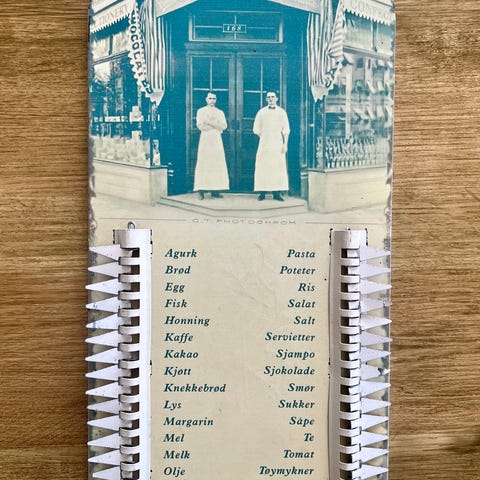 168
CHOCOLAT
C.T. PHOTOCHROM
Agurk Pasta
Brød Poteter
Egg Ris
Fisk Salat
Honning Salt
Kaffe Servietter
Kakao Sjampo
Kjøtt Sjokolade
Knekkebrød Smør
Lys Sukker
Margarin Såpe
Mel Te
Melk Tomat
Olje Tøymykner